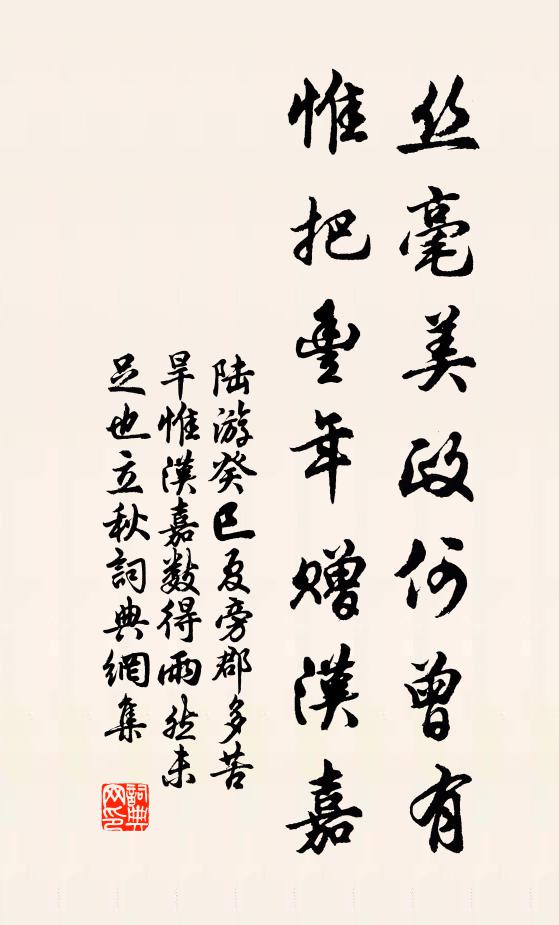 丝毫美政何曾有
惟把豐年贈漢嘉
陆游癸巳夏旁郡多苦
旱惟漢嘉数得雨然未
足也立秋詞典網集
詞典
网印